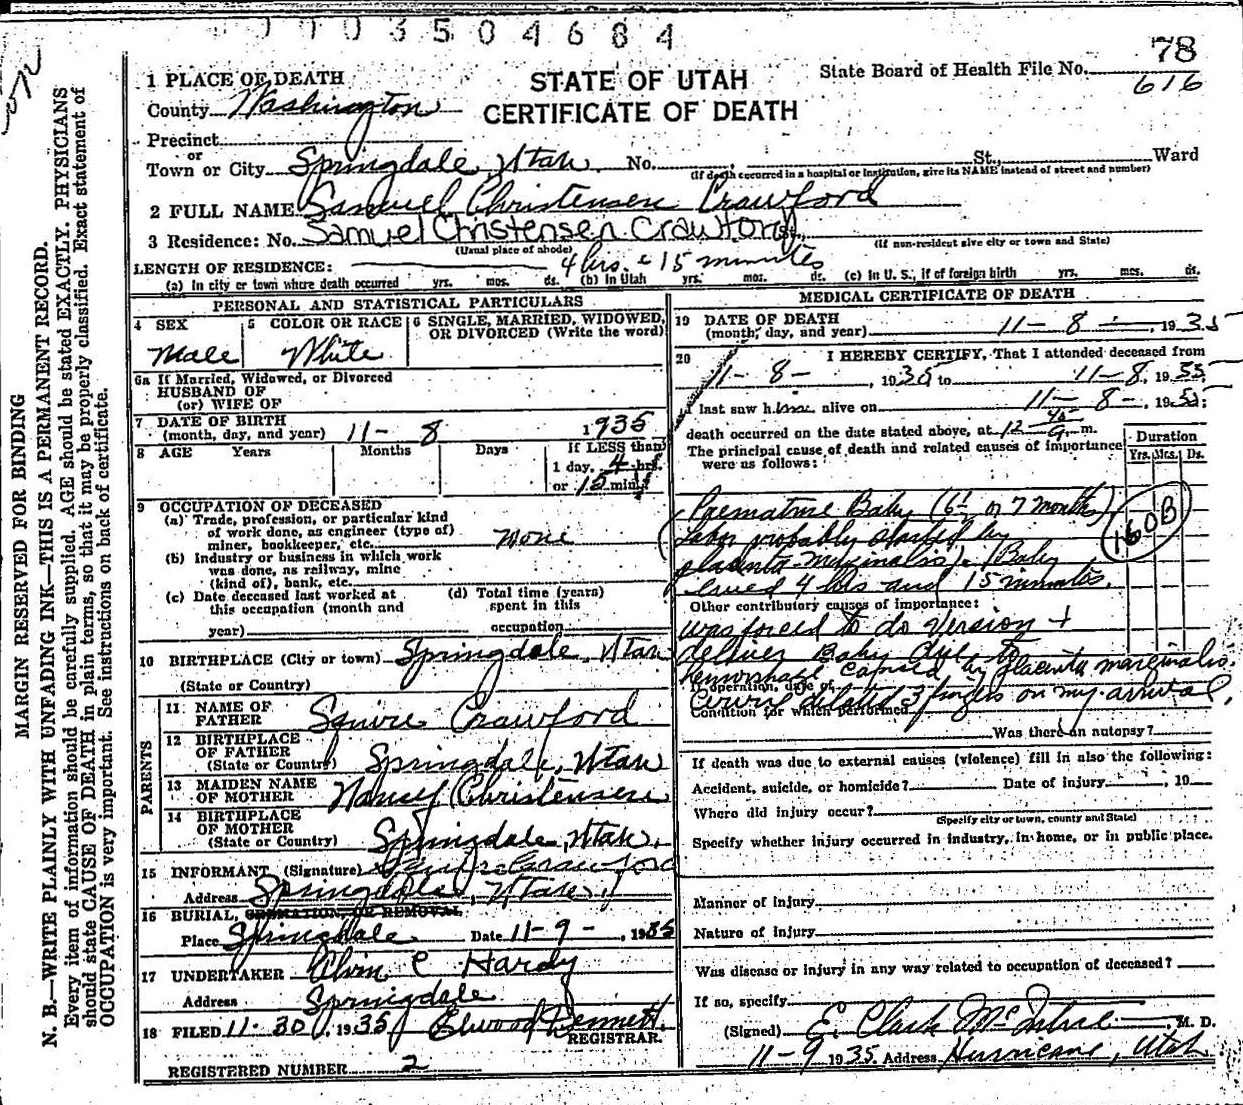 1103504684
78
616
STATE OF UTAH
CERTIFICATE OF DEATH
State Board of Health File No.
MARGIN RESERVED FOR BINDING
N. B.—WRITE PLAINLY WITH UNFADING INK—THIS IS A PERMANENT RECORD.
Every item of information should be carefully supplied. AGE should be stated EXACTLY. PHYSICIANS
should state CAUSE OF DEATH in plain terms, so that it may be properly classified. Exact statement of
OCCUPATION is very important. See instructions on back of certificate.
1 PLACE OF DEATH
County Washington
Precinct
or
Town or City Springdale, Utah. No. , St., Ward
(If death occurred in a hospital or institution, give its NAME instead of street and number)
2 FULL NAME Samuel Christensen Crawford
3 Residence: No. Samuel Christensen Crawford St.,
(Usual place of abode) (If non-resident give city or town and State)
LENGTH OF RESIDENCE: 4 hrs. & 15 minutes
(a) In city or town where death occurred yrs. mos. ds. (b) In Utah yrs. mos. ds. (c) In U. S., if of foreign birth yrs. mos. ds.
PERSONAL AND STATISTICAL PARTICULARS
4 SEX 5 COLOR OR RACE 6 SINGLE, MARRIED, WIDOWED, OR DIVORCED (Write the word)
Male White
6a If Married, Widowed, or Divorced
HUSBAND OF
(or) WIFE OF
7 DATE OF BIRTH
(month, day, and year) 11- 8 1935
8 AGE Years Months Days If LESS than
1 day, 4 hrs.
or 15 min.
9 OCCUPATION OF DECEASED
(a) Trade, profession, or particular kind
of work done, as engineer (type of)
miner, bookkeeper, etc. None
(b) Industry or business in which work
was done, as railway, mine
(kind of), bank, etc.
(c) Date deceased last worked at
this occupation (month and
year)
(d) Total time (years)
spent in this
occupation
10 BIRTHPLACE (City or town) Springdale, Utah
(State or Country)
PARENTS
11 NAME OF
FATHER Squire Crawford
12 BIRTHPLACE
OF FATHER
(State or Country) Springdale, Utah
13 MAIDEN NAME
OF MOTHER Christensen
14 BIRTHPLACE
OF MOTHER
(State or Country) Springdale, Utah.
15 INFORMANT (Signature) Squire Crawford
Address Springdale, Utah.
16 BURIAL, CREMATION, OR REMOVAL
Place Springdale Date 11-9-, 1935
17 UNDERTAKER Alvin C Hardy
Address Springdale
18 FILED 11-30, 1935 Elwood Dennett.
REGISTRAR
REGISTERED NUMBER 2
MEDICAL CERTIFICATE OF DEATH
19 DATE OF DEATH
(month, day, and year) 11- 8 -, 1935
20 I HEREBY CERTIFY, That I attended deceased from
11- 8-, 1935 to 11-8, 1935.
I last saw him alive on 11- 8-, 1935;
death occurred on the date stated above, at 12 m.
The principal cause of death and related causes of importance
were as follows:
Duration
Yrs. Mos. Ds.
Premature Baby (6½ or 7 months)
Labor probably started by
placenta marginalis). (Baby
lived 4 hrs and 15 minutes.
160B
Other contributory causes of importance:
Was forced to do version +
deliver Baby due to
hemorrhage caused by placenta marginalis.
If operation, date of
Cervix dilated 3 fingers on my arrival.
Condition for which performed
Was there an autopsy?
If death was due to external causes (violence) fill in also the following:
Accident, suicide, or homicide? Date of injury , 19
Where did injury occur?
(Specify city or town, county and State)
Specify whether injury occurred in industry, in home, or in public place.
Manner of injury
Nature of injury
Was disease or injury in any way related to occupation of deceased?
If so, specify
(Signed) E. Clark McIntire, M. D.
11-9 1935 Address Hurricane, Utah